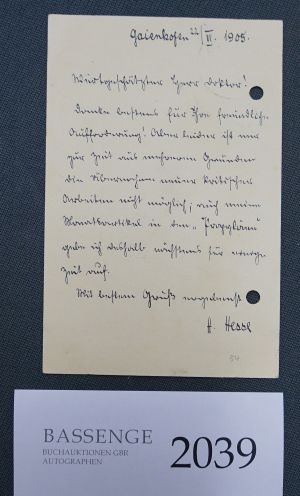 Gaienhofen 22/VI. 1905.
Wertgeschätzter Herr Doktor!
Danke bestens für Ihre freundliche
Aufforderung! Aber leider ist mir
zur Zeit aus mehreren Gründen
die Übernahme neuer kritischer
Arbeiten nicht möglich; auch meine
Monatsartikel in den „Propyläen"
gebe ich deshalb nächstens für einige
Zeit auf.
Mit bestem Gruß ergebenst
H. Hesse
54
BASSENGE
BUCHAUKTIONEN GBR
AUTOGRAPHEN
2039